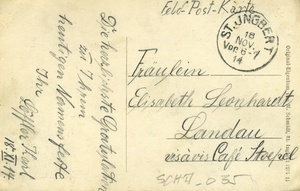 Feld-Post-Karte
ST. INGBERT
18
NOV.
Vor. 6-7
14
Fräulein
Elisabeth Leonhardt
Landau
visàvis Café Stoepel
Die herzlichste Gratulation
zu Ihrem
heutigen Namensfeste
Ihr
Karl
18.XI.14